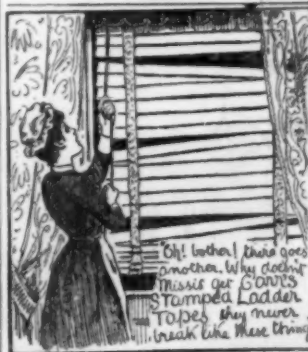 "Oh! bother! there goes
another. Why doesn't
Missis get Carr's
Stamped Ladder
Tapes they never
break like these things